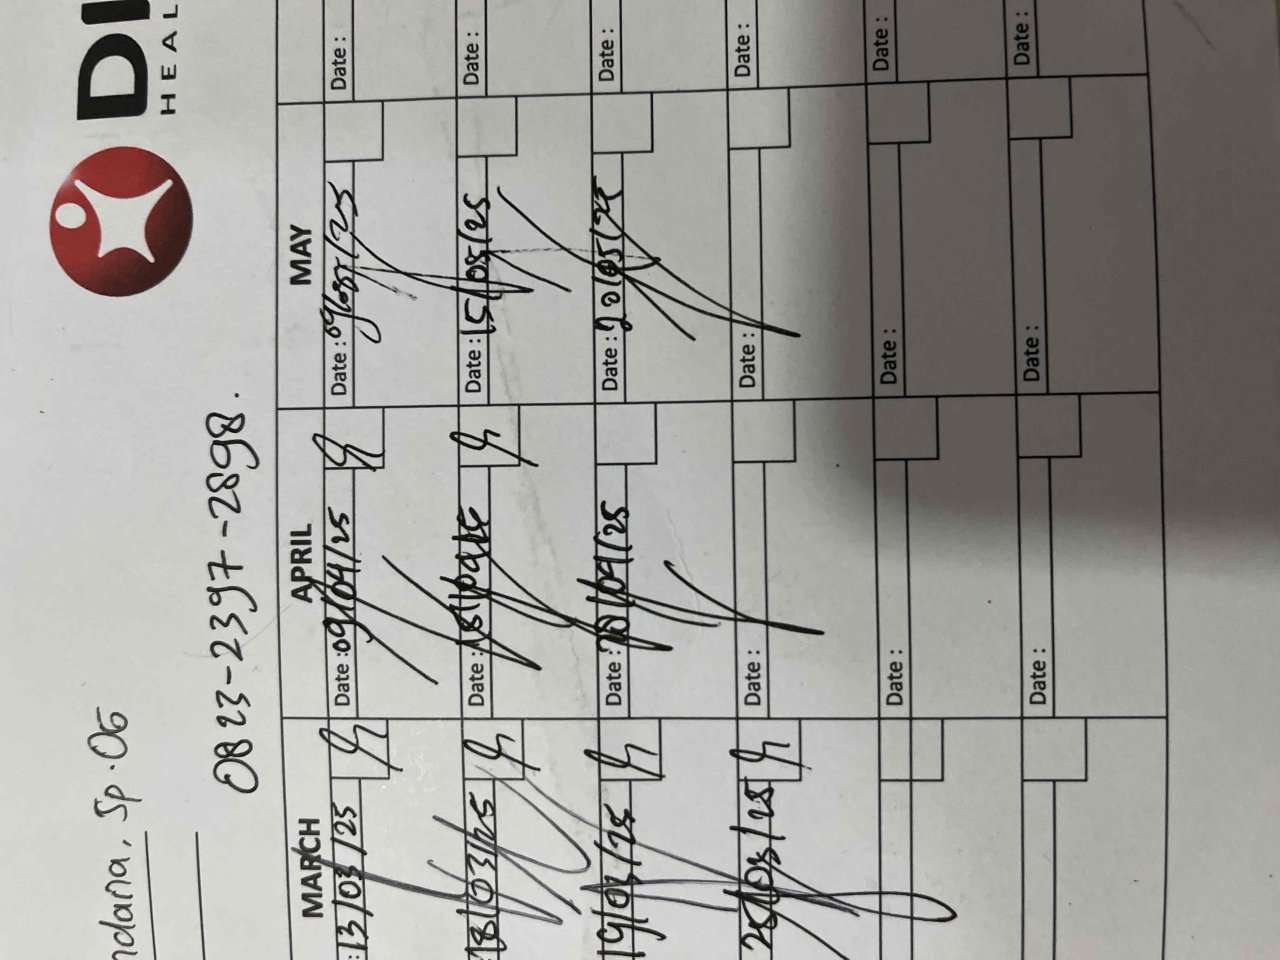 DI
HEAL
ndana, Sp.OG
0823-2397-2898.
MARCH APRIL MAY
: 13/03/25 Date : 09/04/25 Date : 09/05/25 Date :
18/03/25 Date : Date : 15/05/25 Date :
19/03/25 Date : /04/25 Date : 20/05/25 Date :
25/03/25 Date : Date : Date :
Date : Date : Date :
Date : Date : Date :